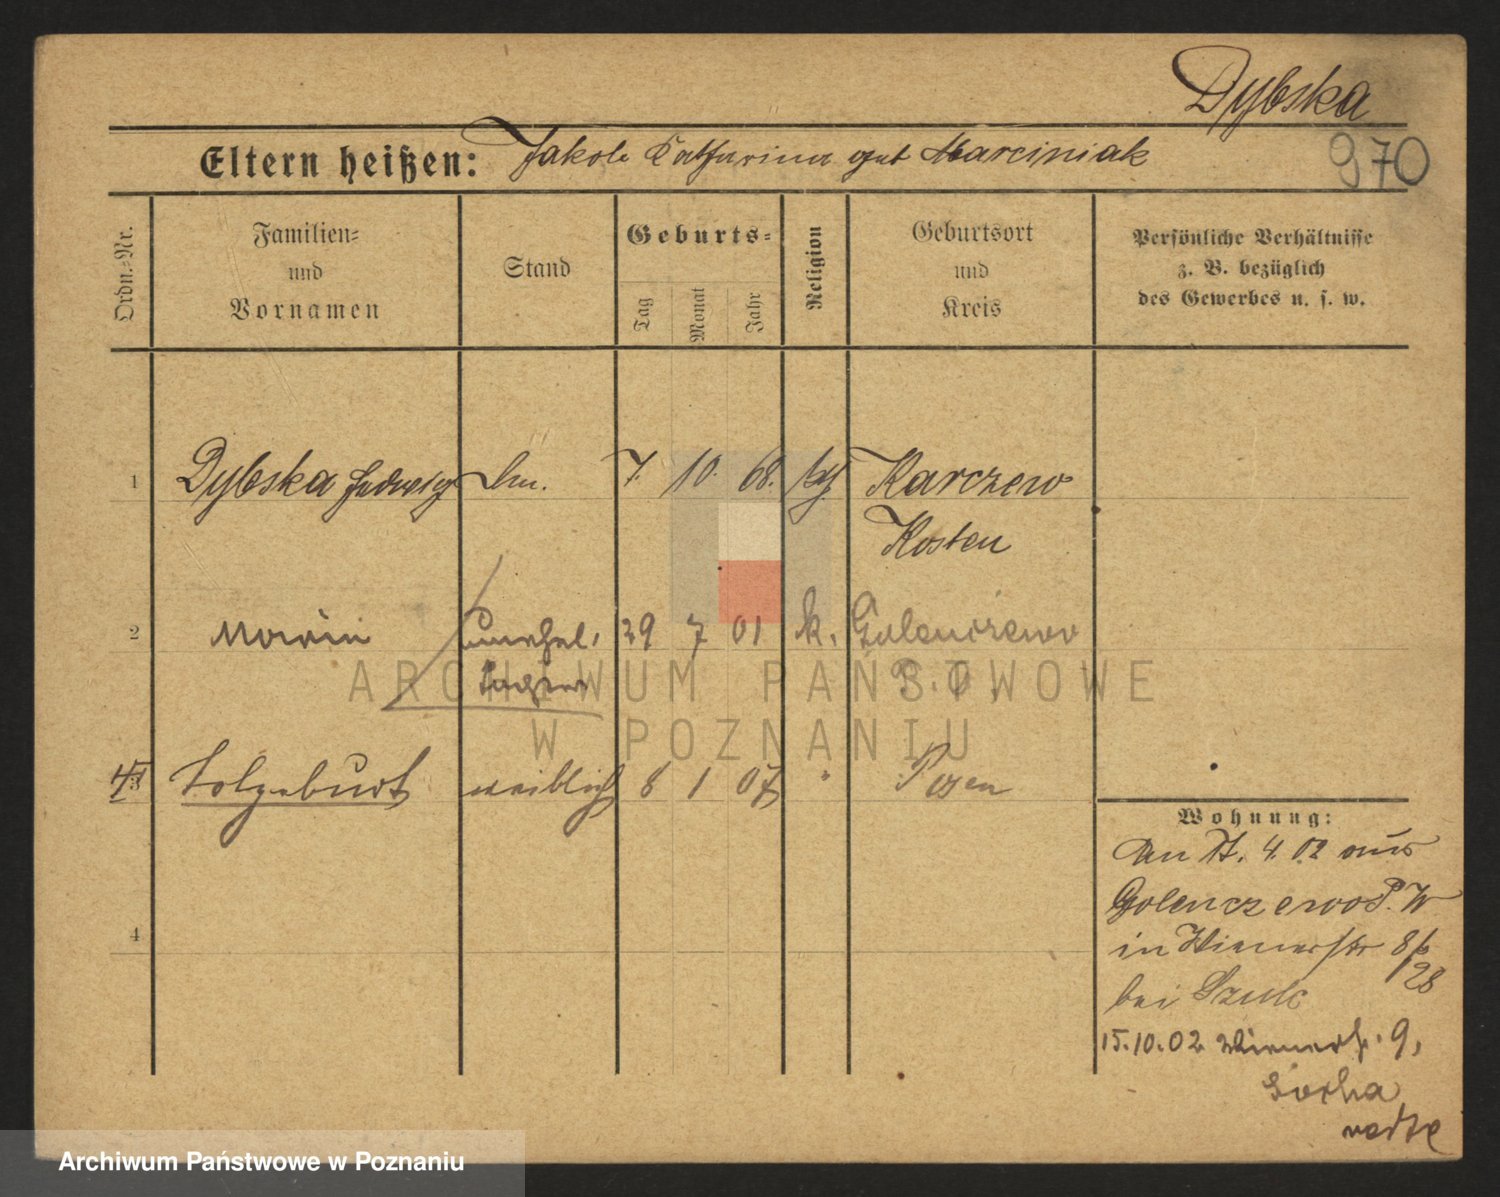 Dybska
Eltern heißen: Jakob Katharina geb Marciniak
970
Ordn.-Nr.
Familien-
und
Vornamen
Stand
Geburts-
Tag
Monat
Jahr
Religion
Geburtsort
und
Kreis
Persönliche Verhältnisse
z. B. bezüglich
des Gewerbes u. s. w.
1 Dybska Hedwig 7. 10. 68. kth Karczew
Kosten
2 Maria unehel. 29 7 01 k. Golenczewo
P. O.
3 Totgeburt weiblich 8 1 07 Posen
4
Wohnung:
An 17. 4. 02 aus
Golenczewo P. W
in Wienerstr 8
128
bei Szulc
15.10.02 Wienerstr. 9,
ARCHIWUM PAŃSTWOWE
W POZNANIU
Archiwum Państwowe w Poznaniu